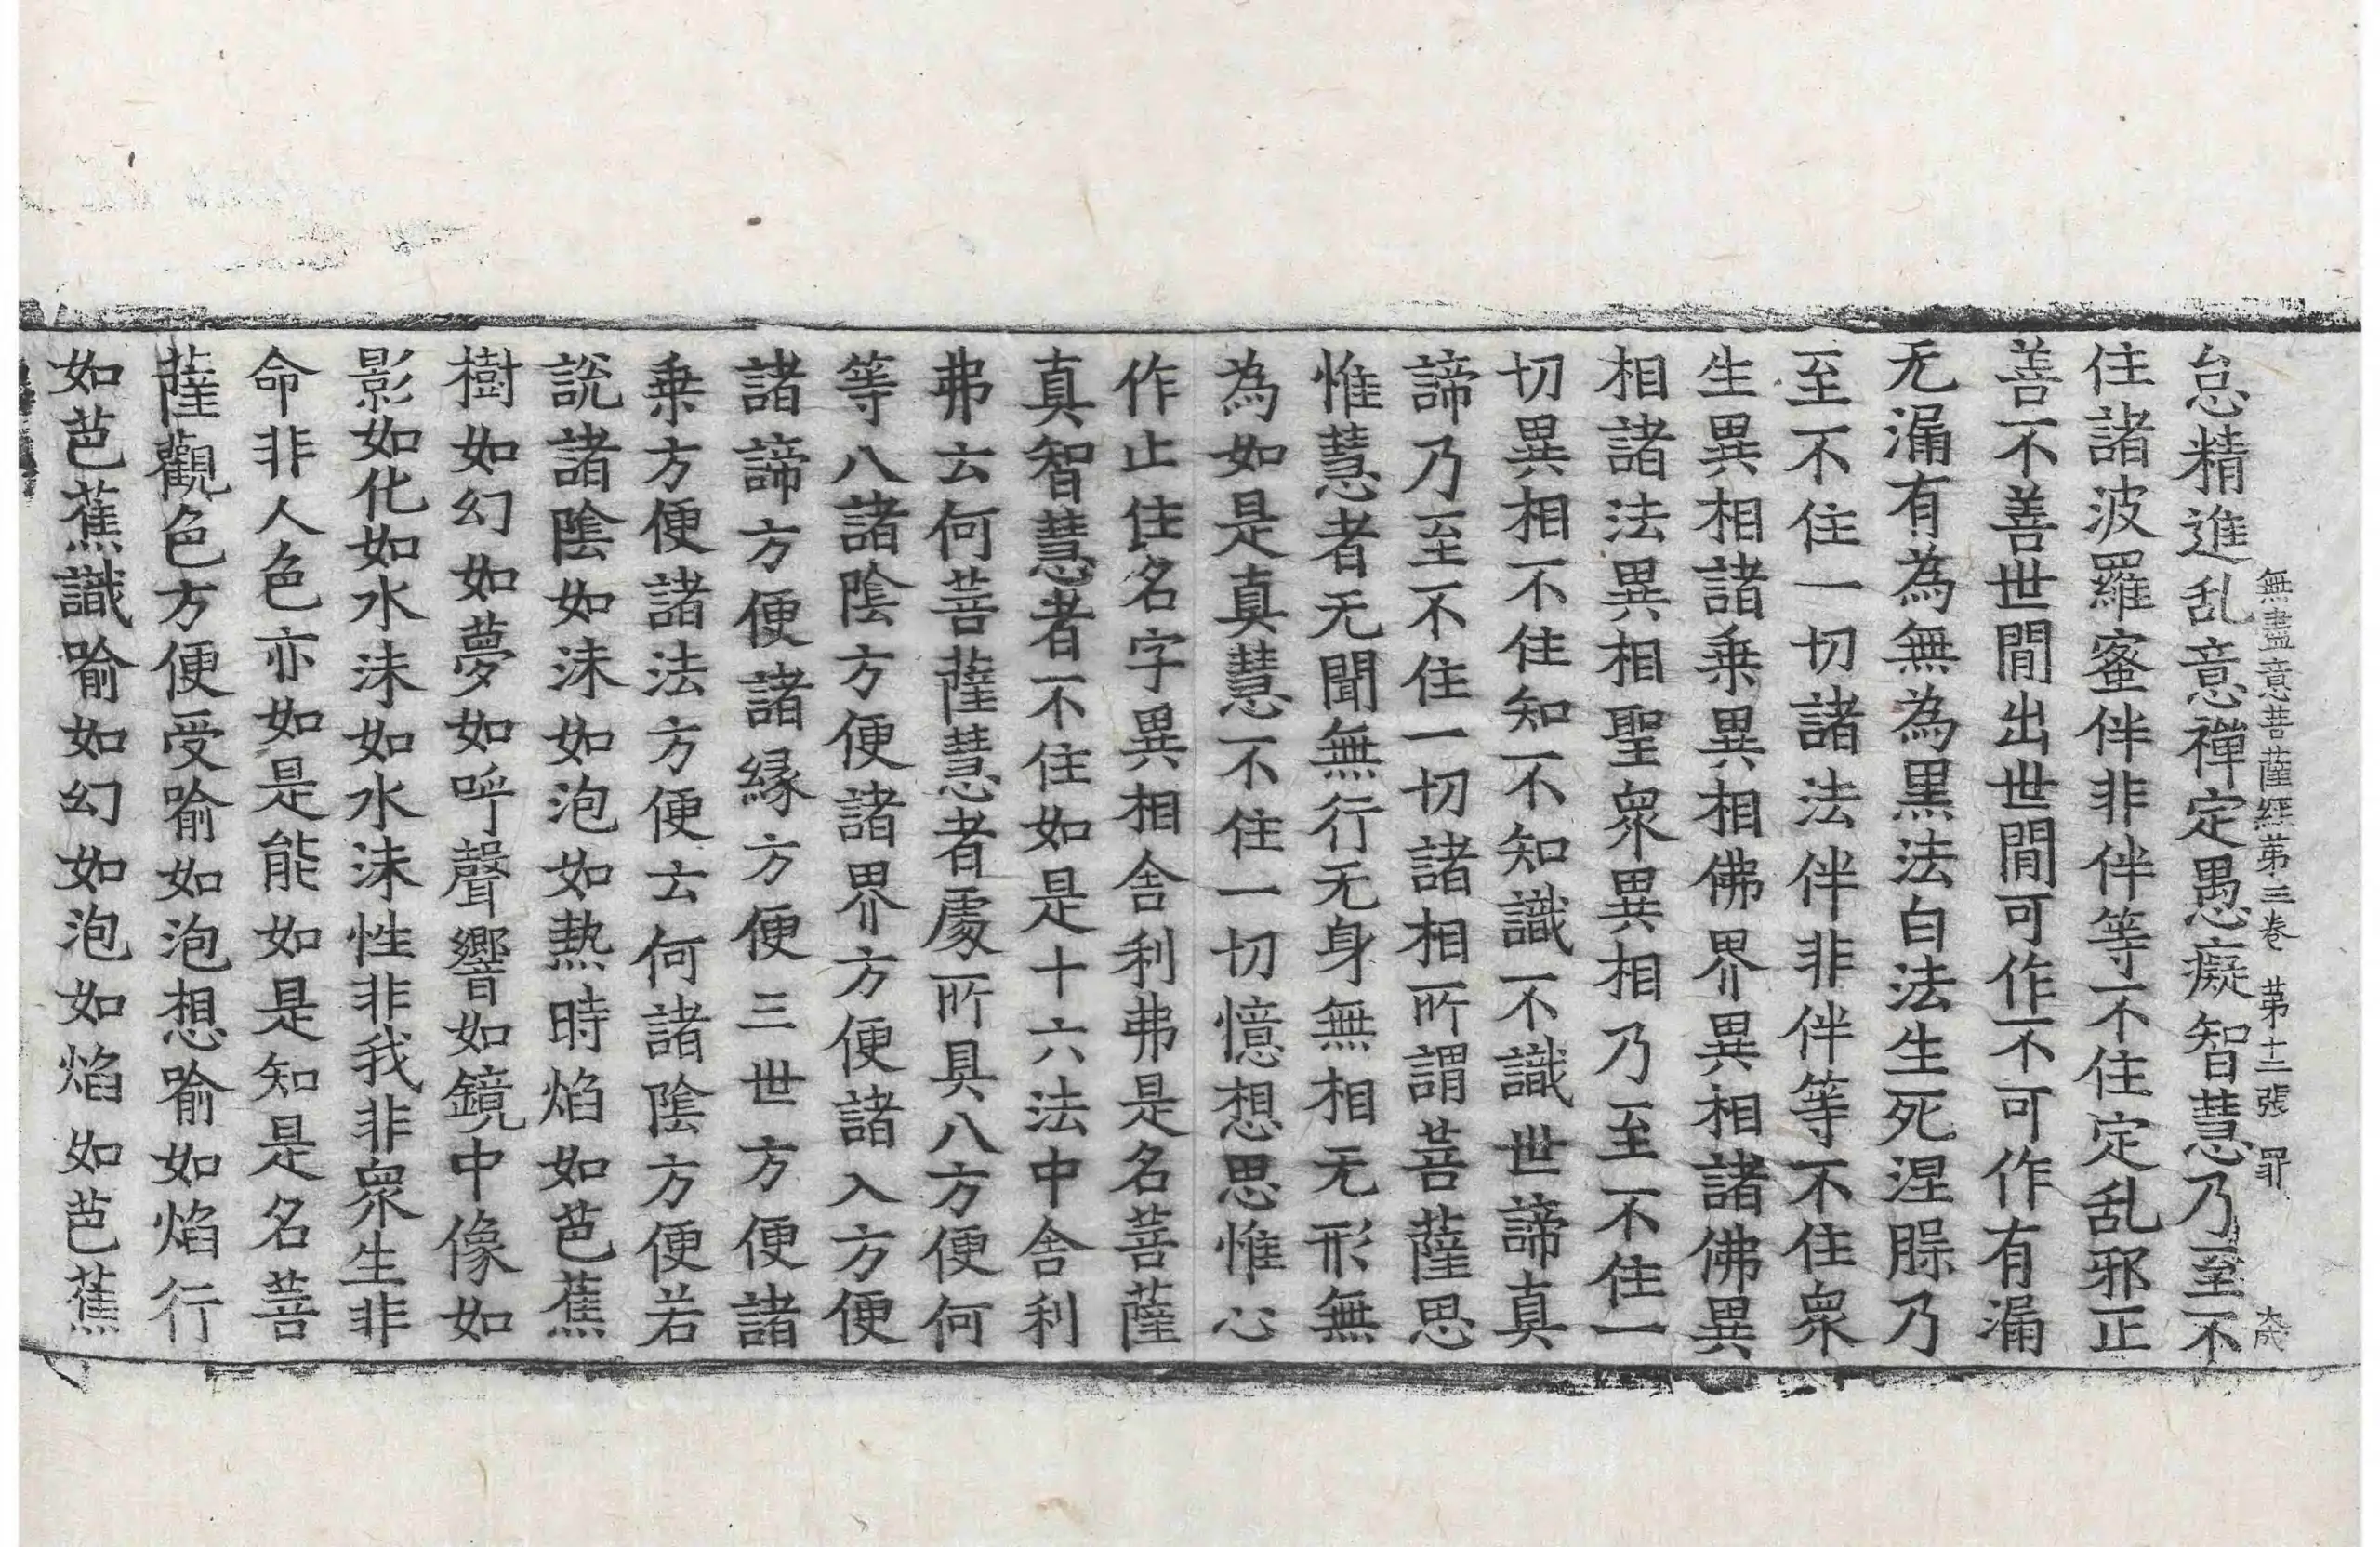 無盡意菩薩經第三卷 第十二張 罪 大成
怠精進乱意禪定愚癡智慧乃至不
住諸波羅蜜伴非伴等不住定乱邪正
善不善世間出世間可作不可作有漏
无漏有為無為黒法白法生死涅槃乃
至不住一切諸法伴非伴等不住衆
生異相諸乗異相佛界異相諸佛異
相諸法異相聖衆異相乃至不住一
切異相不住知不知識不識世諦真
諦乃至不住一切諸相所謂菩薩思
惟慧者无聞無行无身無相无形無
為如是真慧不住一切憶想思惟心
作止住名字異相舎利弗是名菩薩
真智慧者不住如是十六法中舎利
弗云何菩薩慧者處所具八方便何
等八諸陰方便諸界方便諸入方便
諸諦方便諸縁方便三世方便諸
乗方便諸法方便云何諸陰方便若
說諸陰如沫如泡如熱時焰如芭蕉
樹如幻如夢如呼聲響如鏡中像如
影如化如水沫如水沫性非我非衆生非
命非人色亦如是能如是知是名菩
薩觀色方便受喻如泡想喻如焰行
如芭蕉識喻如幻如泡如焰如芭蕉